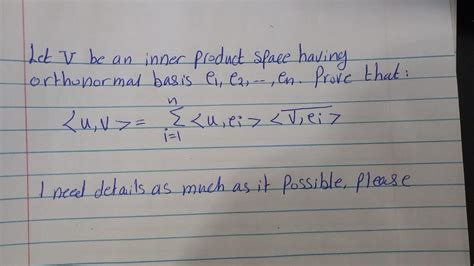 Let V be an inner product space having
orthonormal basis e₁, e₂, --, eₙ. Prove that:
<u,v> = n∑i=1 <u,eᵢ> <v̅,̅e̅ᵢ̅>
I need details as much as it possible, please